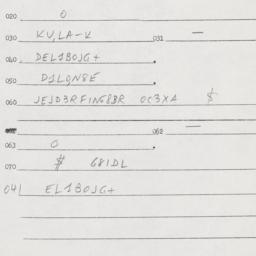 020 0
030 KV,LA-K 031 —
040 DEL1BOJG+
050 D1LQN8E
060 JEJD3RFING8BR OC3XA $
062 —
063 0
070 $ G81DL
041 EL1BOJG+